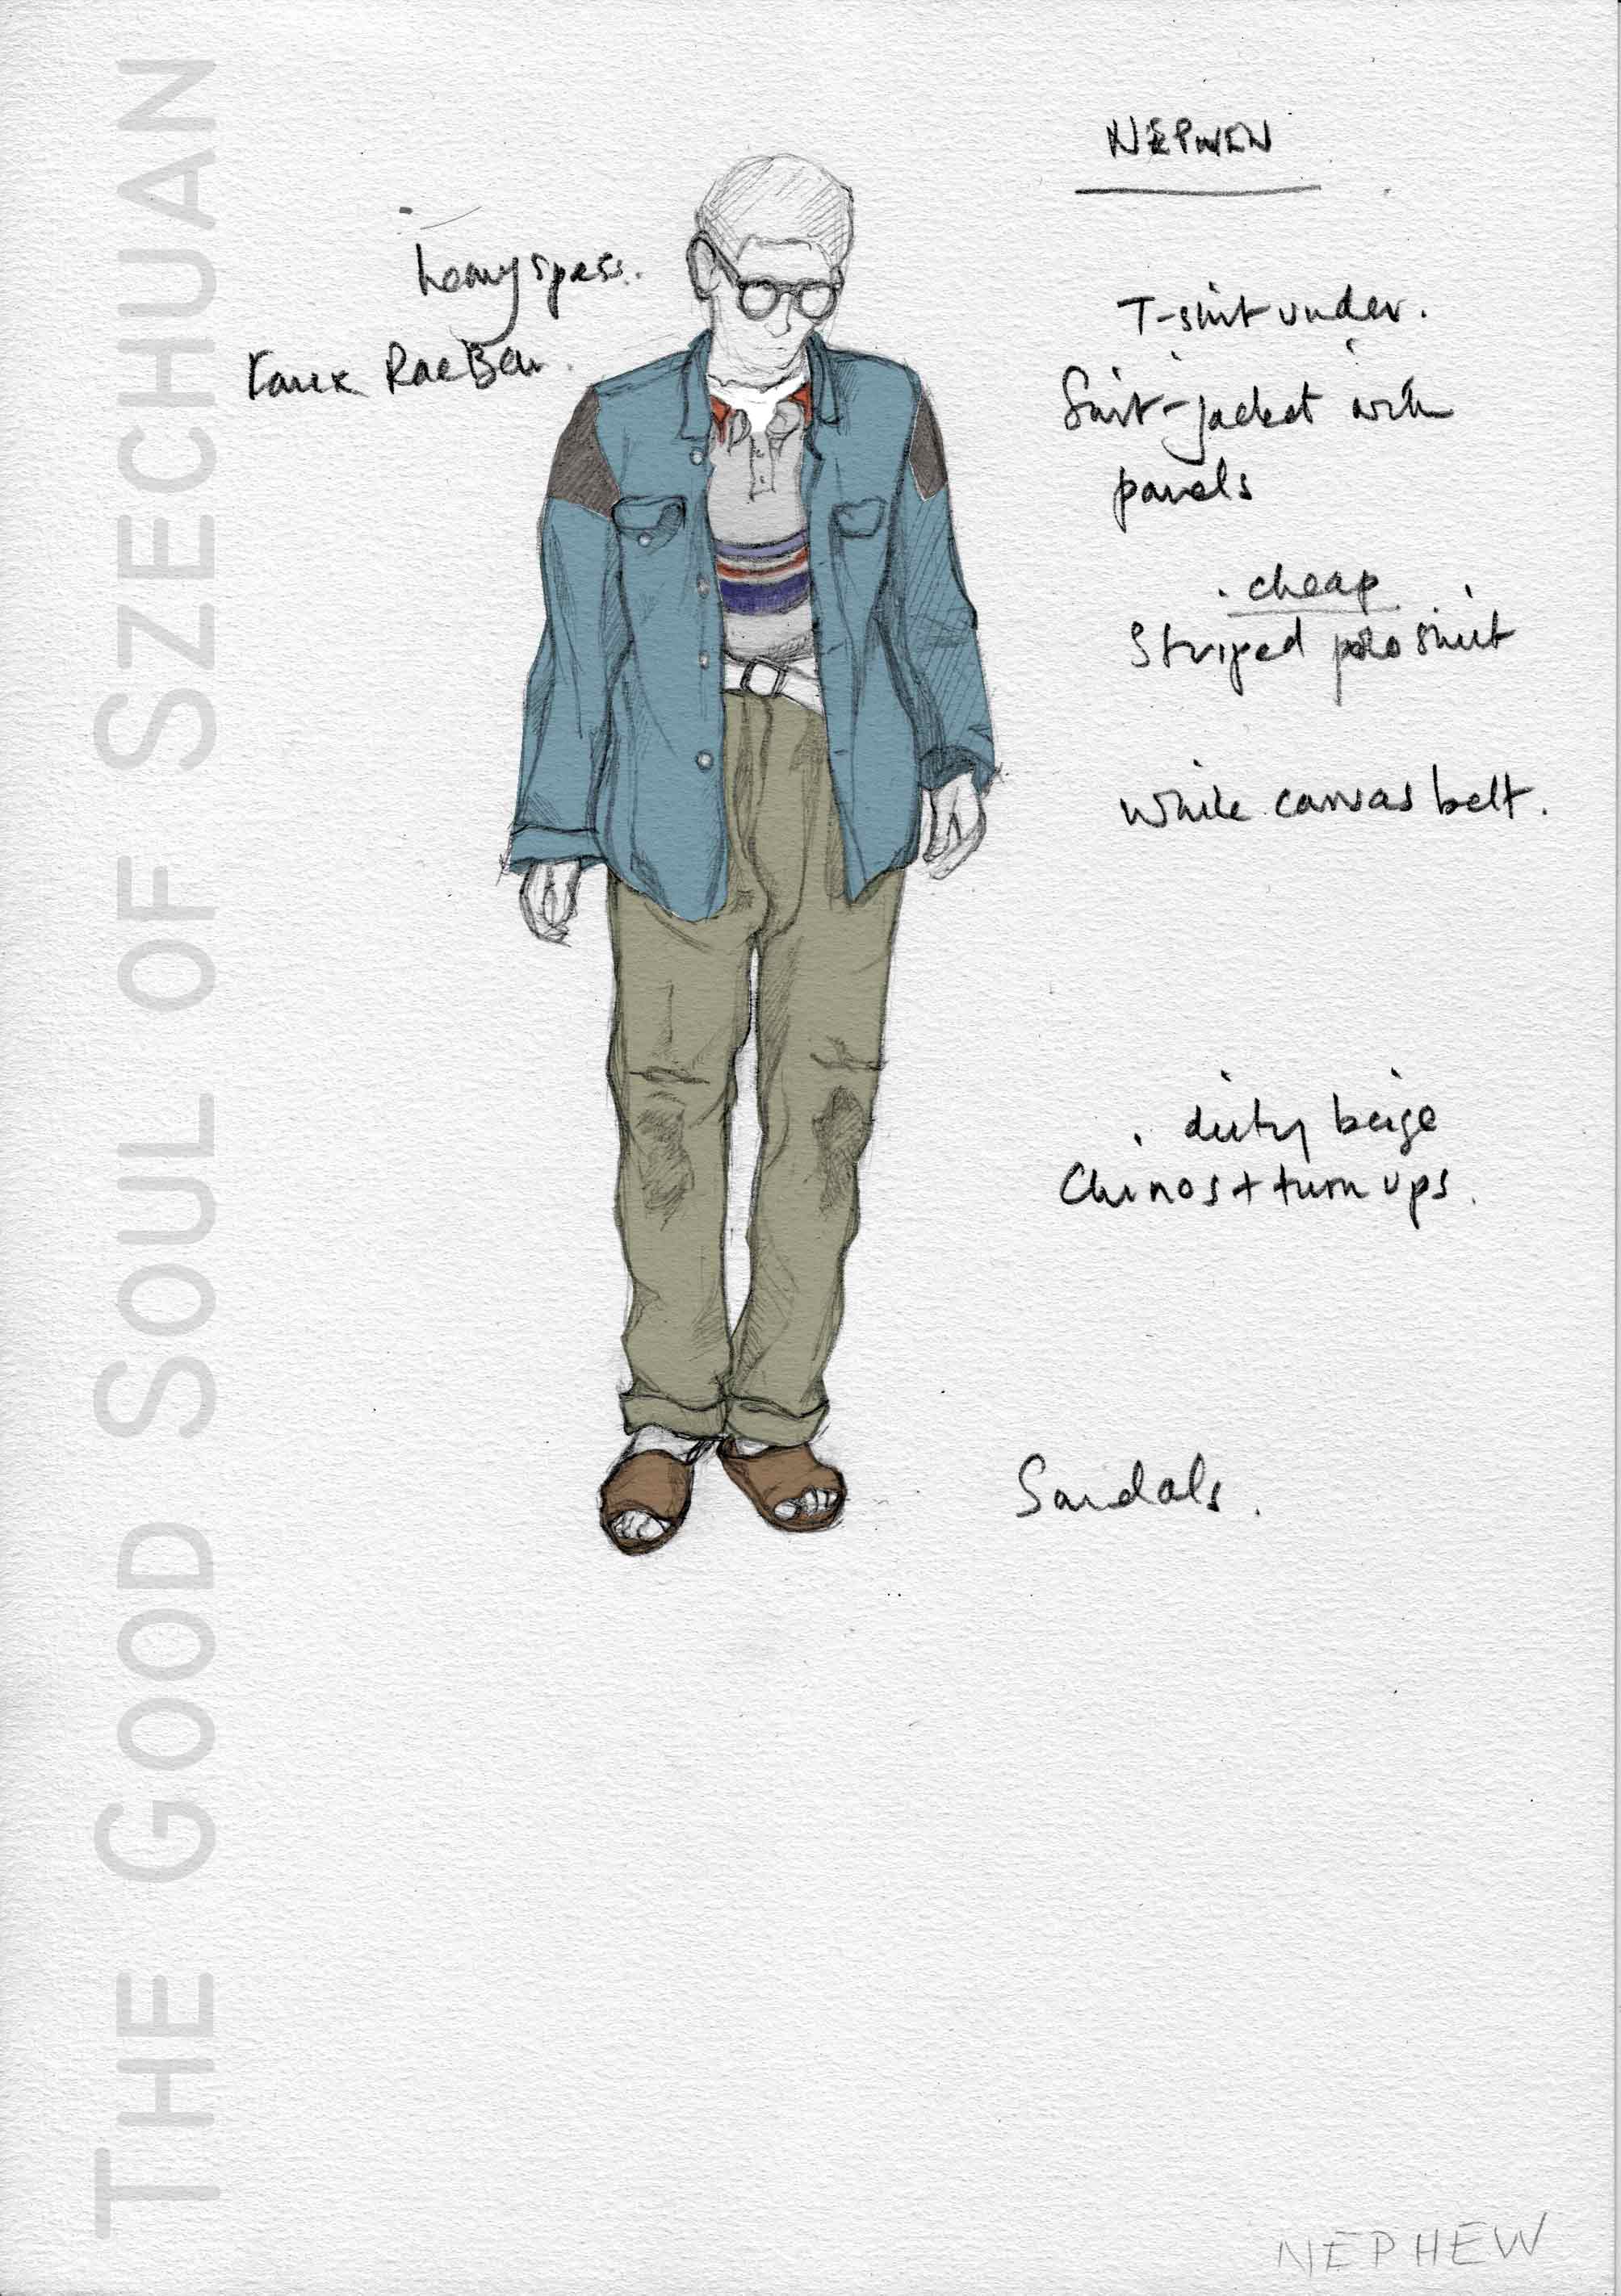 THE GOOD SOUL OF SZECHUAN
NEPHEW
heavy specs.
Faux RaeBan.
T-shirt under.
Shirt-jacket with
panels
. cheap
Striped polo shirt
White canvas belt.
. dirty beige
Chinos + turn ups.
Sandals.
NEPHEW